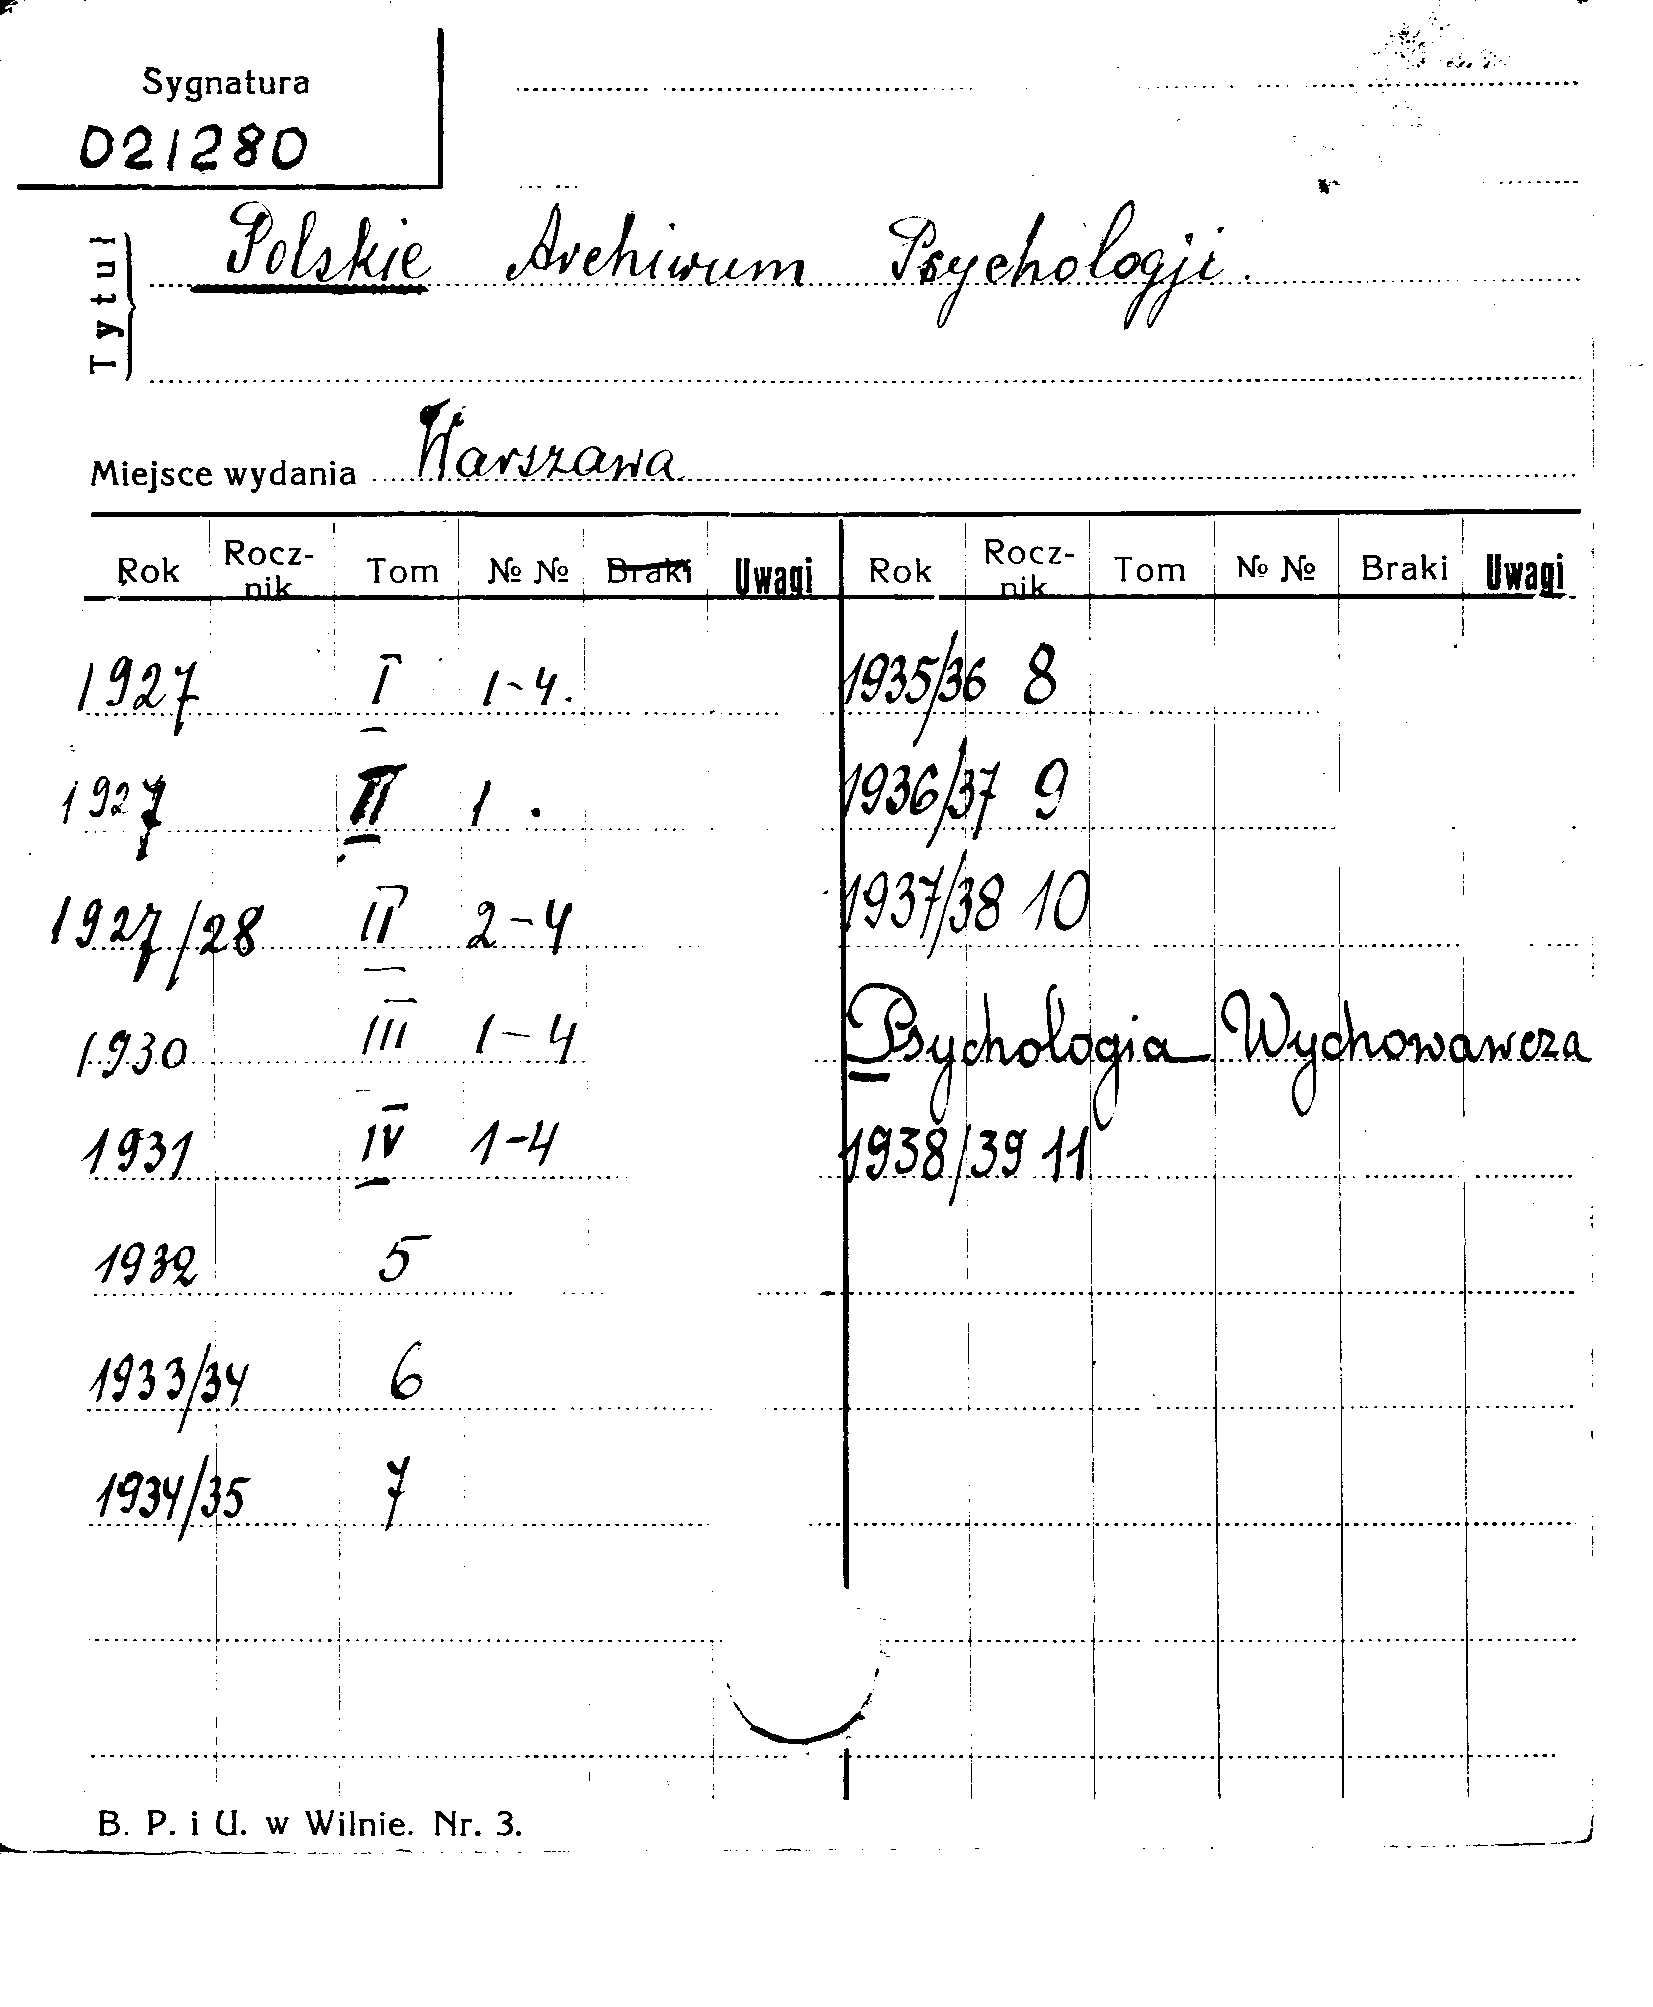 Sygnatura
021280
Tytuł
Polskie Archiwum Psychologji.
Miejsce wydania Warszawa
Rok Rocz-nik Tom № № Braki Uwagi Rok Rocz-nik Tom № № Braki Uwagi
1927 I 1-4. 1935/36 8
1927 II 1. 1936/37 9
1927/28 II 2-4 1937/38 10
1930 III 1-4 Psychologia Wychowawcza
1931 IV 1-4 1938/39 11
1932 5
1933/34 6
1934/35 7
B. P. i U. w Wilnie. Nr. 3.